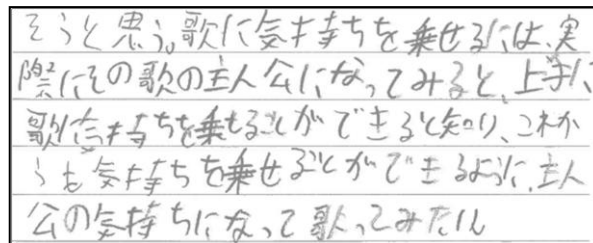 そうと思う。歌に気持ちを乗せるには、実
際にその歌の主人公になってみると、上手に
歌に気持ちを乗せることができると知り、これか
らも気持ちを乗せることができるように、主人
公の気持ちになって歌ってみたい